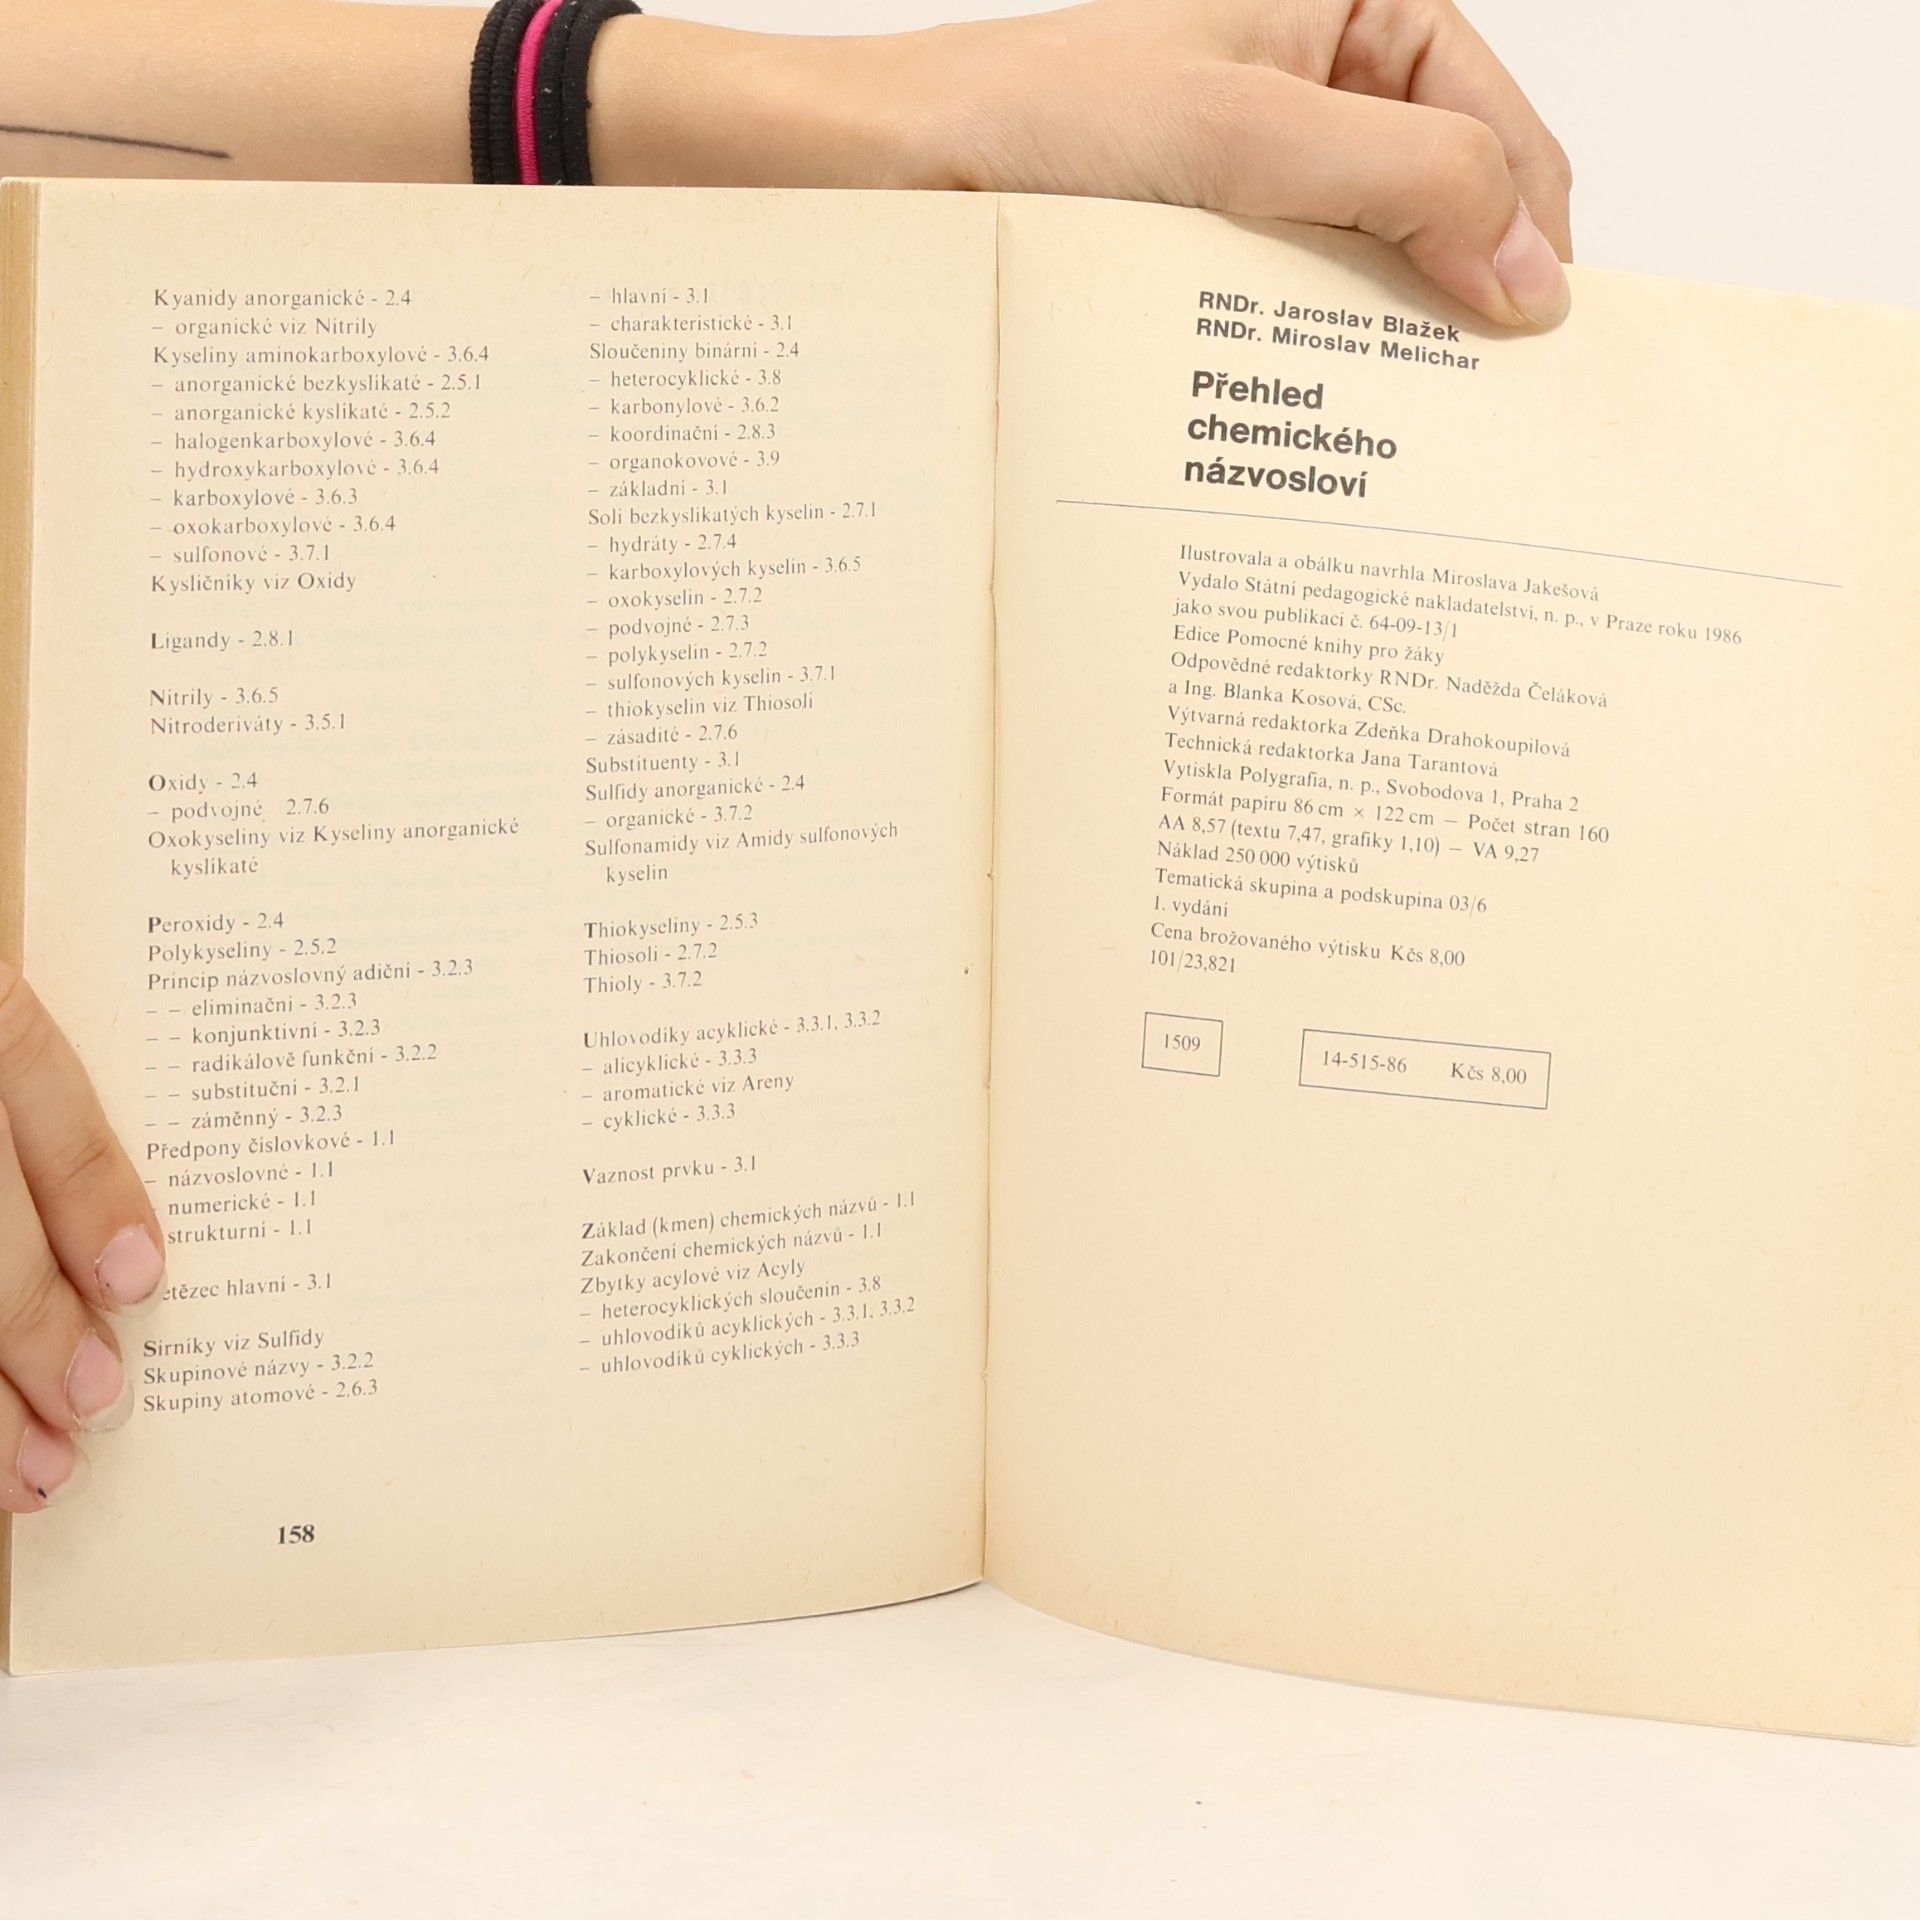 Kyanidy anorganické - 2.4
– organické viz Nitrily
Kyseliny aminokarboxylové - 3.6.4
– anorganické bezkyslíkaté - 2.5.1
– anorganické kyslíkaté - 2.5.2
– halogenkarboxylové - 3.6.4
– hydroxykarboxylové - 3.6.4
– karboxylové - 3.6.3
– oxokarboxylové - 3.6.4
– sulfonové - 3.7.1
Kysličníky viz Oxidy
Ligandy - 2.8.1
Nitrily - 3.6.5
Nitroderiváty - 3.5.1
Oxidy - 2.4
– podvojné 2.7.6
Oxokyseliny viz Kyseliny anorganické
kyslíkaté
Peroxidy - 2.4
Polykyseliny - 2.5.2
Princip názvoslovný adiční - 3.2.3
– – eliminační - 3.2.3
– – konjunktivní - 3.2.3
– – radikálově funkční - 3.2.2
– – substituční - 3.2.1
– – záměnný - 3.2.3
Předpony číslovkové - 1.1
– názvoslovné - 1.1
numerické - 1.1
strukturní - 1.1
etězec hlavní - 3.1
Sirníky viz Sulfidy
Skupinové názvy - 3.2.2
Skupiny atomové - 2.6.3
– hlavní - 3.1
– charakteristické - 3.1
Sloučeniny binární - 2.4
– heterocyklické - 3.8
– karbonylové - 3.6.2
– koordinační - 2.8.3
– organokovové - 3.9
– základní - 3.1
Soli bezkyslíkatých kyselin - 2.7.1
– hydráty - 2.7.4
– karboxylových kyselin - 3.6.5
– oxokyselin - 2.7.2
– podvojné - 2.7.3
– polykyselin - 2.7.2
– sulfonových kyselin - 3.7.1
– thiokyselin viz Thiosoli
– zásadité - 2.7.6
Substituenty - 3.1
Sulfidy anorganické - 2.4
– organické - 3.7.2
Sulfonamidy viz Amidy sulfonových
kyselin
Thiokyseliny - 2.5.3
Thiosoli - 2.7.2
Thioly - 3.7.2
Uhlovodíky acyklické - 3.3.1, 3.3.2
– alicyklické - 3.3.3
– aromatické viz Areny
– cyklické - 3.3.3
Vaznost prvku - 3.1
Základ (kmen) chemických názvů - 1.1
Zakončení chemických názvů - 1.1
Zbytky acylové viz Acyly
– heterocyklických sloučenin - 3.8
– uhlovodíků acyklických - 3.3.1, 3.3.2
– uhlovodíků cyklických - 3.3.3
158
RNDr. Jaroslav Blažek
RNDr. Miroslav Melichar
Přehled
chemického
názvosloví
Ilustrovala a obálku navrhla Miroslava Jakešová
Vydalo Státní pedagogické nakladatelství, n. p., v Praze roku 1986
jako svou publikaci č. 64-09-13/1
Edice Pomocné knihy pro žáky
Odpovědné redaktorky RNDr. Naděžda Čeláková
a Ing. Blanka Kosová, CSc.
Výtvarná redaktorka Zdeňka Drahokoupilová
Technická redaktorka Jana Tarantová
Vytiskla Polygrafia, n. p., Svobodova 1, Praha 2
Formát papíru 86 cm × 122 cm – Počet stran 160
AA 8,57 (textu 7,47, grafiky 1,10) – VA 9,27
Náklad 250 000 výtisků
Tematická skupina a podskupina 03/6
1. vydání
Cena brožovaného výtisku Kčs 8,00
101/23,821
1509
14-515-86 Kčs 8,00